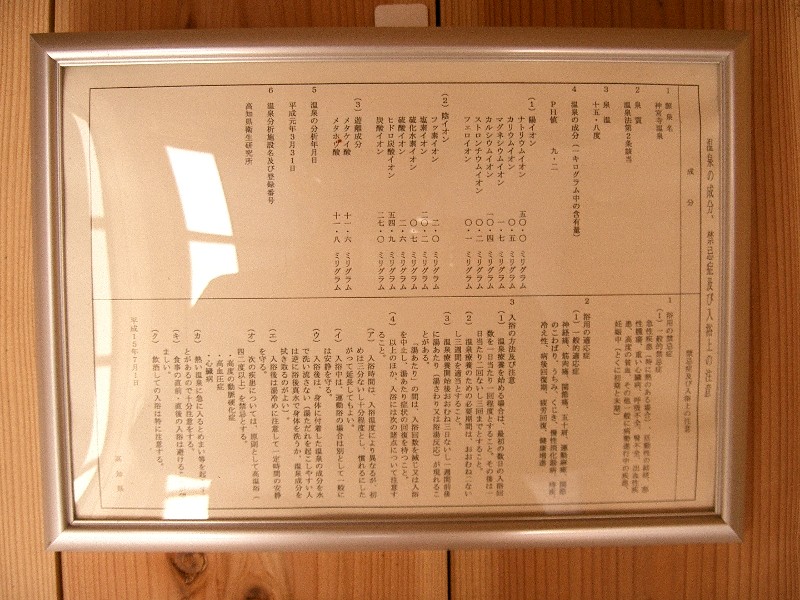 温泉の成分、禁忌症及び入浴上の注意
成分
1 源泉名
神宮寺温泉
2 泉質
温泉法第2条該当
3 泉温
十五・八度
4 温泉の成分(一キログラム中の含有量)
PH値 九・二
(1) 陽イオン
ナトリウムイオン 五〇・〇 ミリグラム
カリウムイオン 〇・五 ミリグラム
マグネシウムイオン 一・七 ミリグラム
カルシウムイオン 一〇・四 ミリグラム
ストロンチウムイオン 〇・二 ミリグラム
フェロイオン 〇・一 ミリグラム
(2) 陰イオン
フッ素イオン 二・〇 ミリグラム
塩素イオン 二〇・二 ミリグラム
硫化水素イオン 〇・七 ミリグラム
硫酸イオン 二・六 ミリグラム
ヒドロ炭酸イオン 五四・九 ミリグラム
炭酸イオン 二七・〇 ミリグラム
(3) 遊離成分
メタケイ酸 十一・六 ミリグラム
メタホウ酸 十一・八 ミリグラム
5 温泉の分析年月日
平成元年3月31日
6 温泉分析施設名及び登録番号
高知県衛生研究所
禁忌症及び入浴上の注意
1 浴用の禁忌症
(1) 一般的禁忌症
急性疾患(特に熱のある場合)、活動性の結核、悪
性腫瘍、重い心臓病、呼吸不全、腎不全、出血性疾
患、高度の貧血、その他一般に病勢進行中の疾患、
妊娠中(とくに初期と末期)
2 浴用の適応症
(1) 一般的適応症
神経痛、筋肉痛、関節痛、五十肩、運動麻痺、関節
のこわばり、うちみ、くじき、慢性消化器病、痔疾
冷え性、病後回復期、疲労回復、健康増進
3 入浴の方法及び注意
(1) 温泉療養を始める場合は、最初の数日の入浴回
数を一日当たり一回程度とすること。その後は一
日当たり二回ないし三回までとすること。
(2) 温泉療養のための必要期間は、おおむね二ない
し三週間を適当とすること。
(3) 温泉療養開始後おおむね三日ないし一週間前後
に湯あたり(湯さわり又は浴湯反応)が現れるこ
とがある。
「湯あたり」の間は、入浴回数を減じ又は入浴
を中止し、湯あたり症状の回復を待つこと。
(4) 以上のほか、入浴には次の諸点について注意す
ること。
(ア) 入浴時間は、入浴温度により異なるが、初
めは三分ないし十分程度とし、慣れるにした
がって延長してもよい。
(イ) 入浴中は、運動浴の場合は別として一般に
は安静を守る。
(ウ) 入浴後は、身体に付着した温泉の成分を水
で洗い流さない(湯ただれを起こしやすい人
は逆に浴後真水で身体を洗うか、温泉成分を
拭き取るのがよい)。
(エ) 入浴後は湯冷めに注意して一定時間の安静
を守る。
(オ) 次の疾患については、原則として高温浴(
四二度以上)を禁忌とする。
・高度の動脈硬化症
・高血圧症
・心臓病
(カ) 熱い温泉に急に入るとめまい等を起こすこ
とがあるので十分注意をする。
(キ) 食事の直前・直後の入浴は避けることが望
ましい。
(ク) 飲酒しての入浴は特に注意する。
平成15年7月1日
高知県